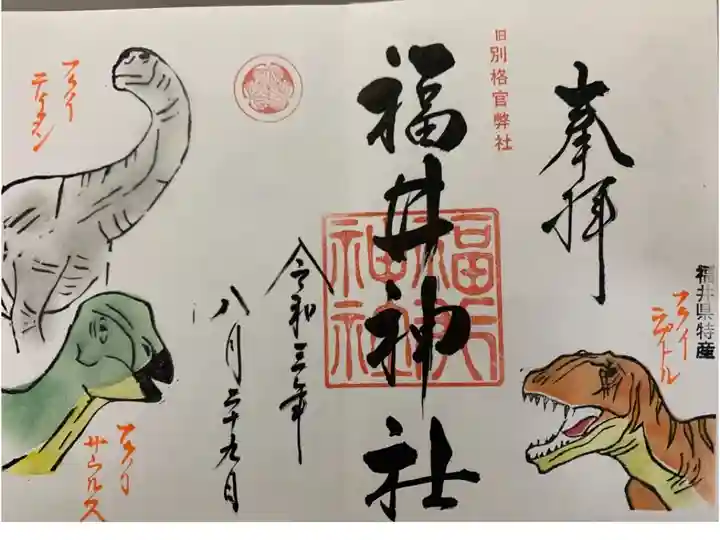 奉拝
福井県特産
フクイ
ラプトル
旧別格官幣社
福井神社
福井
神社
令和三年
八月二十九日
フクイ
ティタン
フクイ
サウルス